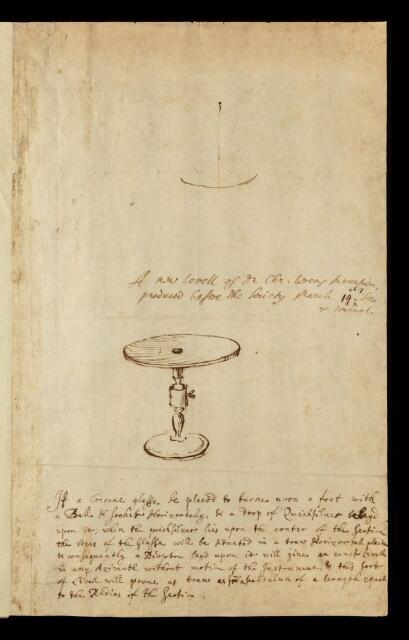 A new Levell of Dr Chr. Wrens Invention,
produced before the Society March 19.
Journal.
If a Concave glasse be placed to turne upon a foot with
a Ball & Socket Horizontaly, & a drop of Quicksilver
upon it, when the quicksilver lies upon the center of the Section
the edges of the Glasse will be situated in a true Horizontall plain
& consequently a Dioptra layd upon it will give an exact Levell
in any Azimuth without motion of the Instrument. & this sort
of Levell will prove as true as a pendulum of a length equall
to the Radius of the Section.